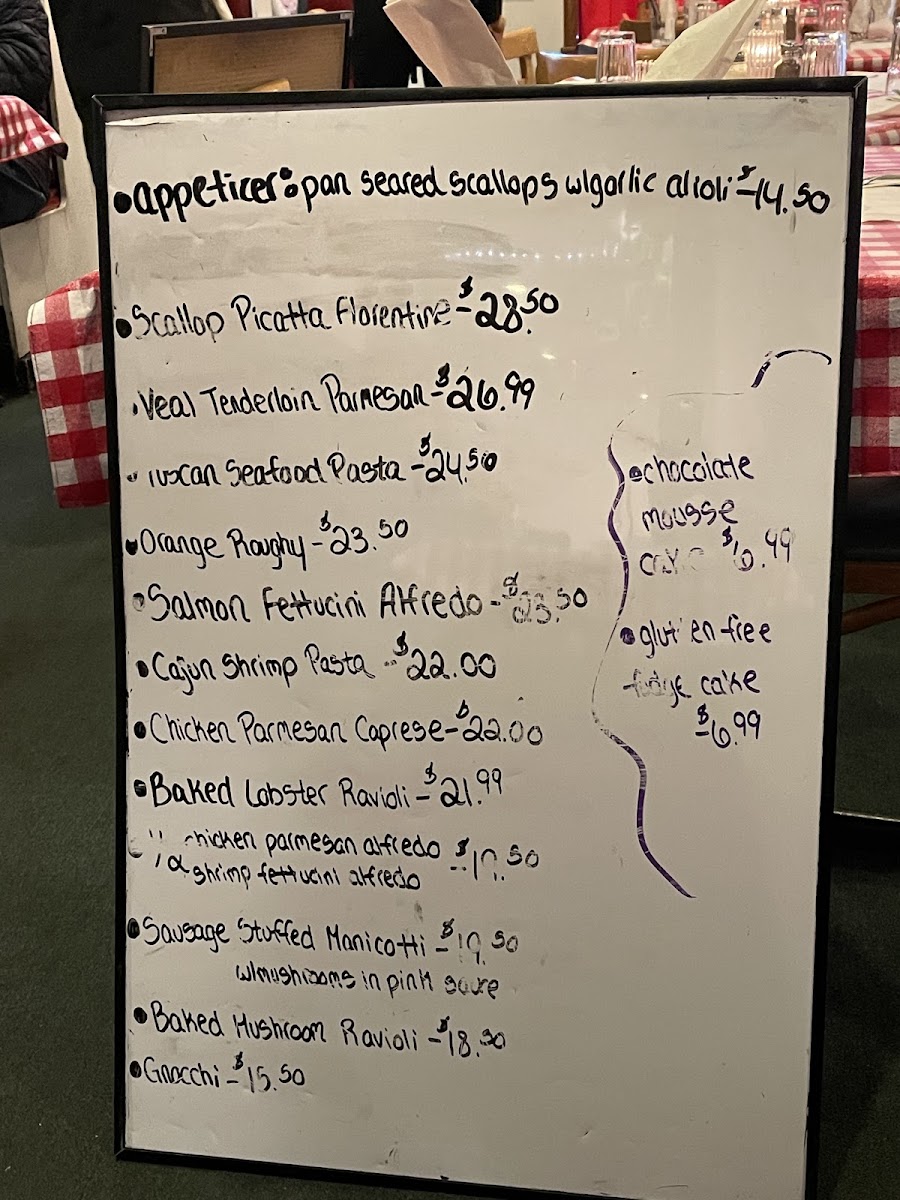 •appeticer: pan seared scallops w/garlic alioli - $14.50
•Scallop Picatta Florentine - $28.50
•Veal Tenderloin Parmesan - $26.99
•Tuscan Seafood Pasta - $24.50
•Orange Roughy - $23.50
•Salmon Fettucini Alfredo - $23.50
•Cajun Shrimp Pasta - $22.00
•Chicken Parmesan Caprese - $22.00
•Baked Lobster Ravioli - $21.99
chicken parmesan alfredo
shrimp fettucini alfredo
•Sausage Stuffed Manicotti - $19.50
w/mushrooms in pink sauce
•Baked Mushroom Ravioli - $18.50
•Gnocchi - $15.50
•chocolate
mousse
cake $6.99
•gluten-free
fudge cake
- $6.99